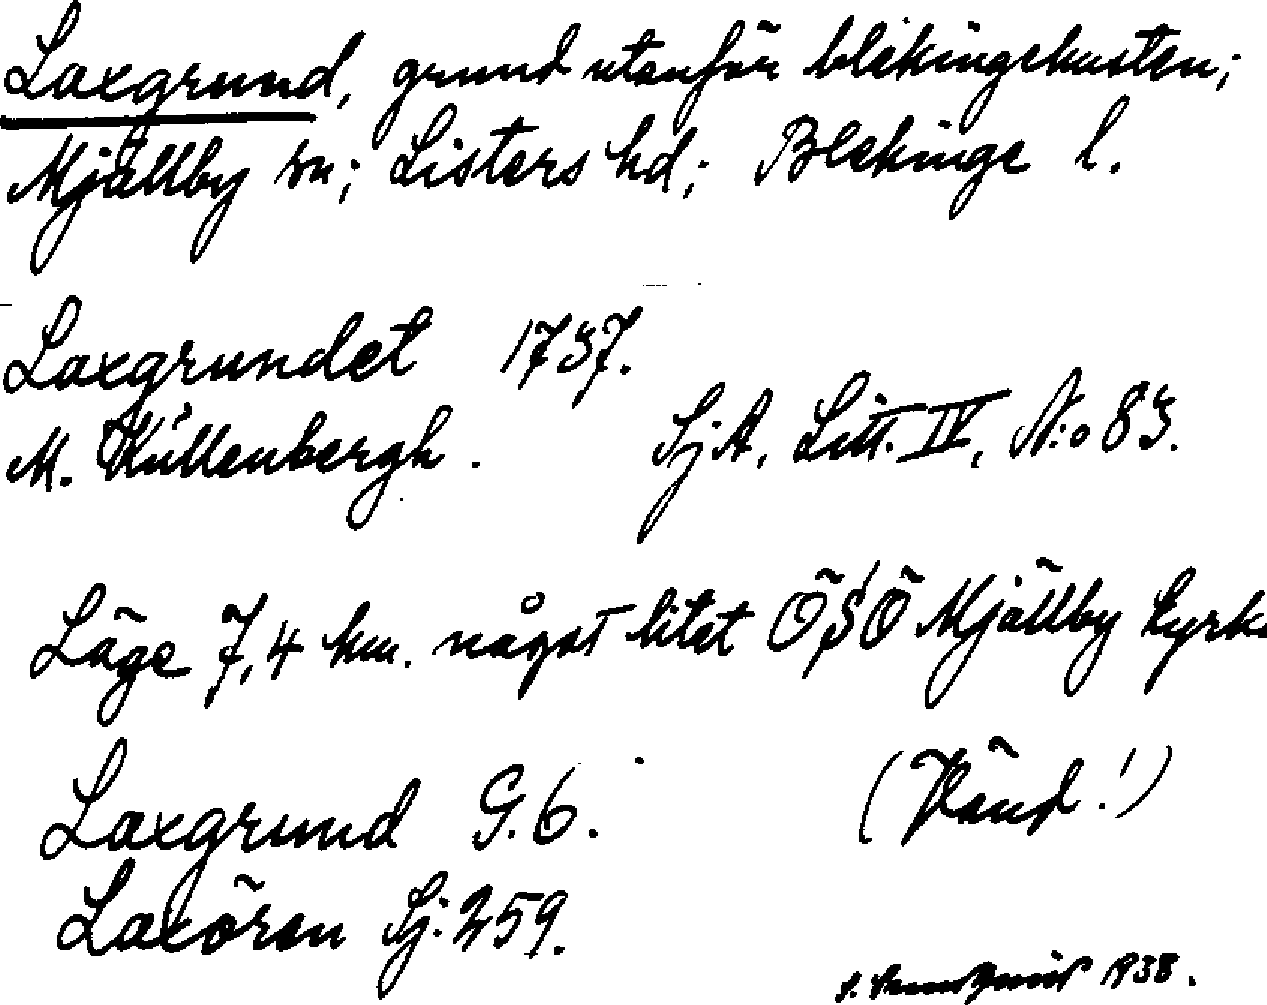 Laxgrund, grund utanför blekingekusten;
Mjällby sn; Listers hd; Blekinge l.
Laxgrundet 1737.
M. Küllenbergh. SjA, Litt. IV, N:o 83.
Läge 7,4 km. något litet ÖSÖ Mjällby kyrk
Laxgrund G.6. (Vänd!)
Laxören Sj. 259.
1938.